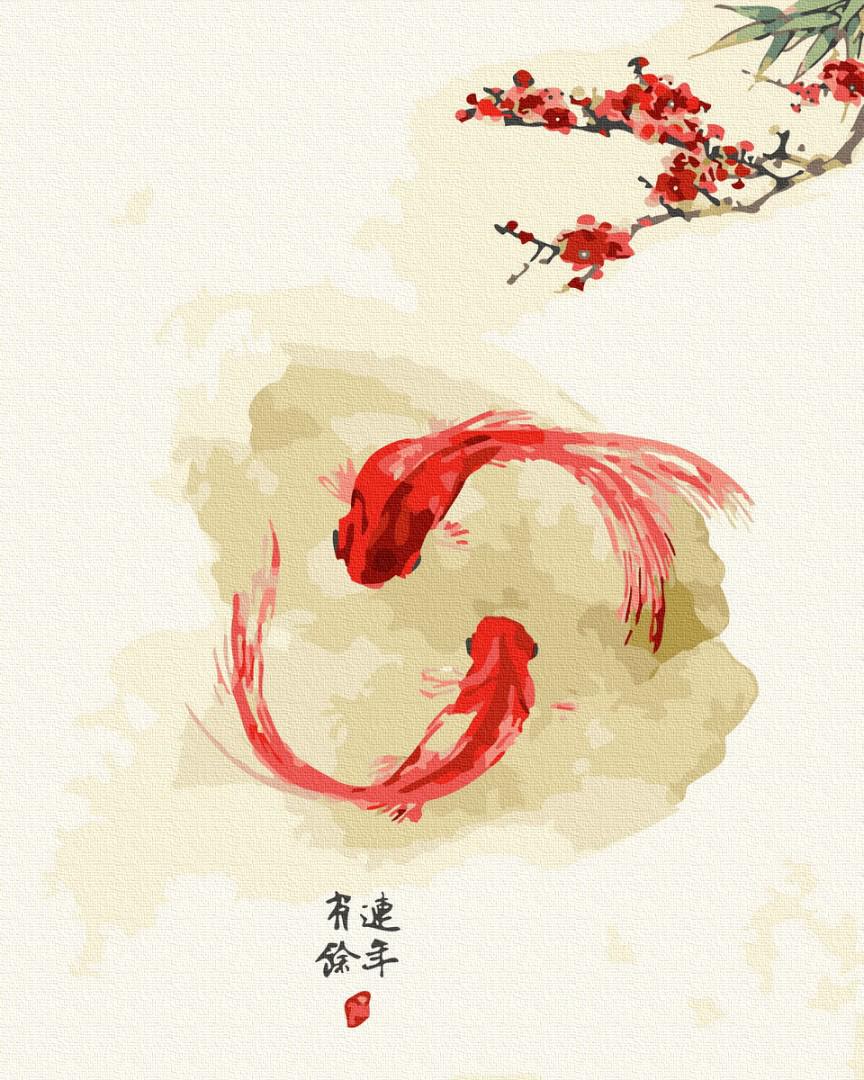 連年
有餘